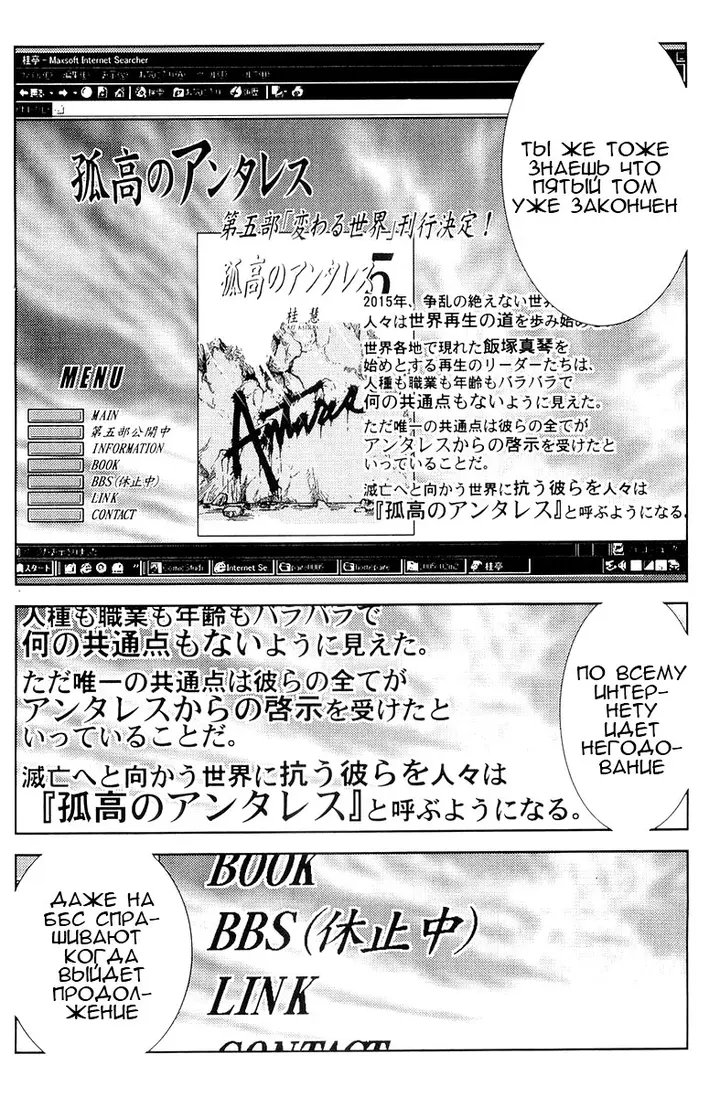 桂亭 - Maxsoft Internet Searcher
ТЫ ЖЕ ТОЖЕ
ЗНАЕШЬ ЧТО
ПЯТЫЙ ТОМ
УЖЕ ЗАКОНЧЕН
孤高のアンタレス
第五部「変わる世界」刊行決定!
孤高のアンタレス 5
桂 慧
Antares
2015年、争乱の絶えない世界
人々は世界再生の道を歩み始め
世界各地で現れた飯塚真琴を
始めとする再生のリーダーたちは、
人種も職業も年齢もバラバラで
何の共通点もないように見えた。
ただ唯一の共通点は彼らの全てが
アンタレスからの啓示を受けたと
いっていることだ。
滅亡へと向かう世界に抗う彼らを人々は
『孤高のアンタレス』と呼ぶようになる。
MENU
MAIN
第五部公開中
INFORMATION
BOOK
BBS(休止中)
LINK
CONTACT
スタート
Internet Se
桂亭
人種も職業も年齢もバラバラで
何の共通点もないように見えた。
ただ唯一の共通点は彼らの全てが
アンタレスからの啓示を受けたと
いっていることだ。
滅亡へと向かう世界に抗う彼らを人々は
『孤高のアンタレス』と呼ぶようになる。
ПО ВСЕМУ
ИНТЕР-
НЕТУ
ИДЕТ
НЕГОДО-
ВАНИЕ
ДАЖЕ НА
ББС СПРА-
ШИВАЮТ
КОГДА
ВЫЙДЕТ
ПРОДОЛ-
ЖЕНИЕ
BOOK
BBS(休止中)
LINK
CONTACT